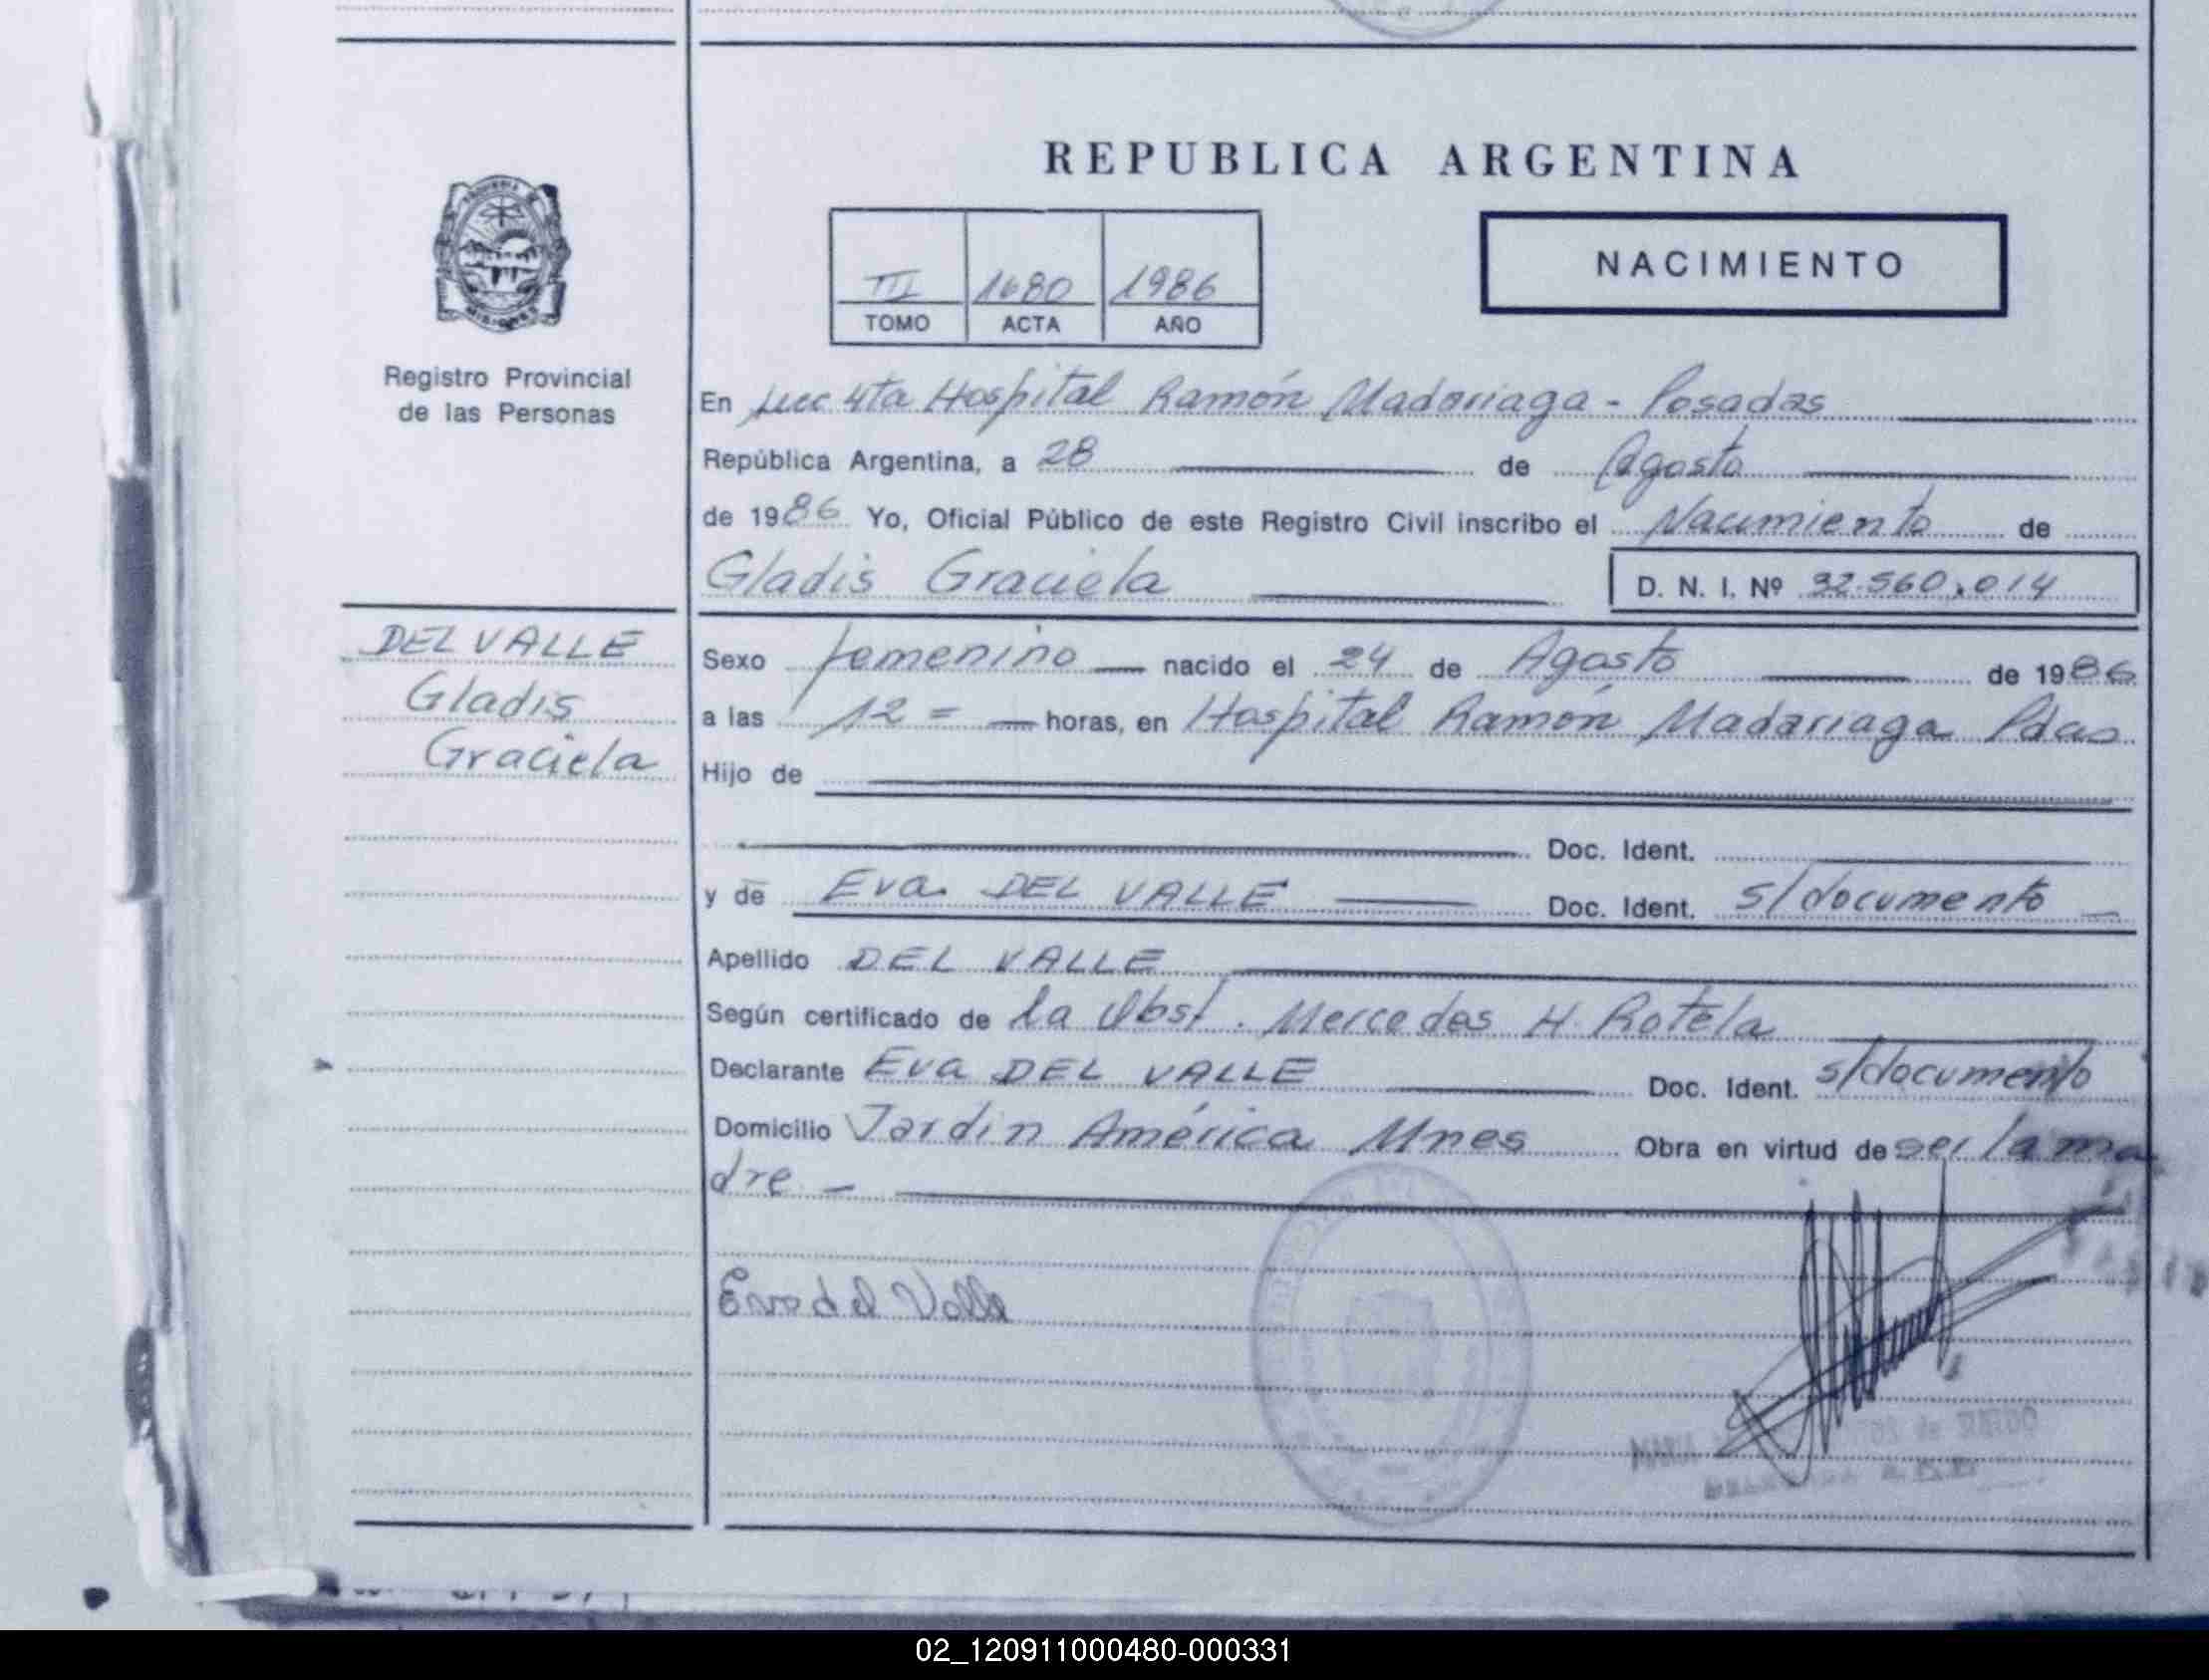 REPUBLICA ARGENTINA
NACIMIENTO
III 1680 1986
TOMO ACTA AÑO
Registro Provincial
de las Personas
En secc 4ta Hospital Ramón Madariaga - Posadas
República Argentina, a 28 de Agosto
de 1986 Yo, Oficial Público de este Registro Civil inscribo el Nacimiento de
Gladis Graciela D. N. I. Nº 32.560.014
DEL VALLE
Gladis
Graciela
Sexo femenino nacido el 24 de Agosto de 1986
a las 12 = horas, en Hospital Ramón Madariaga Pdas
Hijo de
Doc. Ident.
y de Eva DEL VALLE Doc. Ident. s/documento
Apellido DEL VALLE
Según certificado de la Obst. Mercedes H. Rotela
Declarante Eva DEL VALLE Doc. Ident. s/documento
Domicilio Jardin América Mnes Obra en virtud de ser la ma
dre -
Eva del Valle
02_120911000480-000331